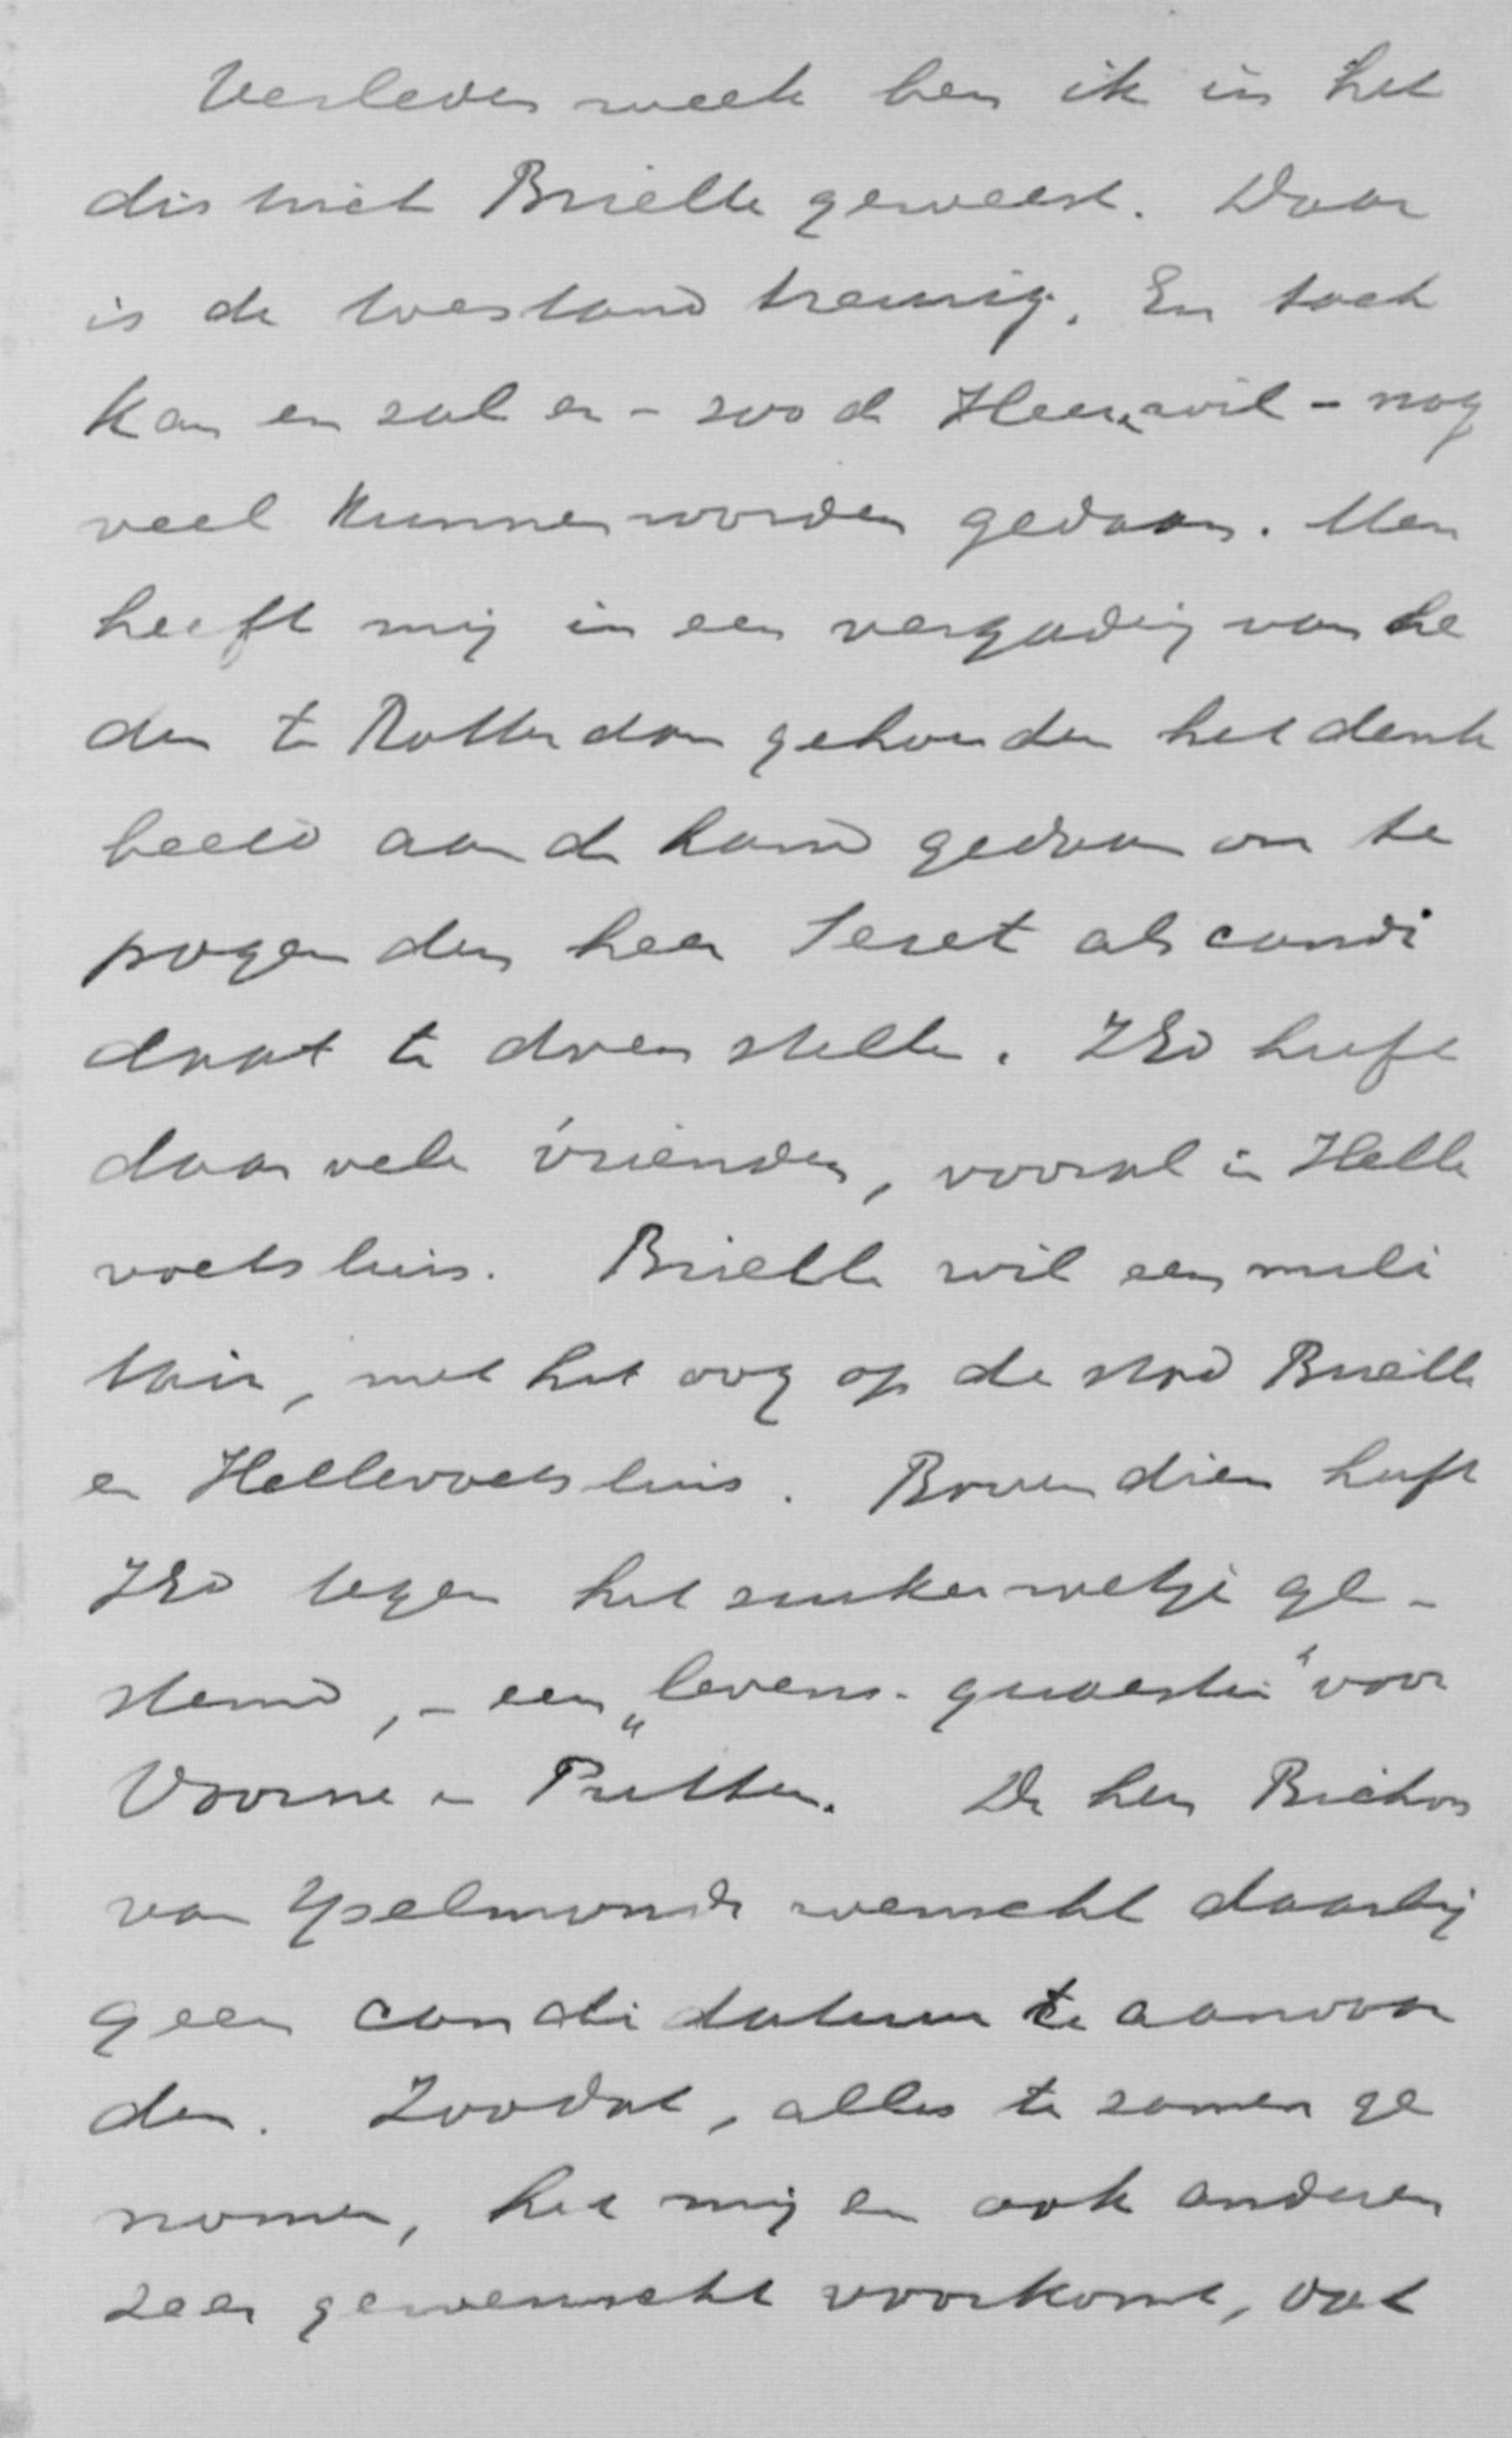 Verleden week ben ik in het
district Brielle geweest. Daar
is de toestand treurig. En toch
kan en zal er - zoo de Heer wil - nog
veel kunnen worden gedaan. Men
heeft mij in een vergadering van he
den te Rotterdam gehouden het denk
beeld aan de hand gedaan om te
pogen den heer Seret als candi
daat te doen stellen. ZEd heeft
daar vele vrienden, vooral in Helle
voetsluis. Brielle wil een mili
tair, met het oog op de stad Brielle
en Hellevoetsluis. Bovendien heeft
ZEd tegen het suikerwetje ge-
stemd, - een „levens-quaestie" voor
Voorne en Putten. De heer Bichon
van Yselmonde wenscht daarbij
geen candidatuur te aanvaar
den. Zoodat, alles te zamen ge
nomen, het mij en ook anderen
zeer gewenscht voorkomt, dat